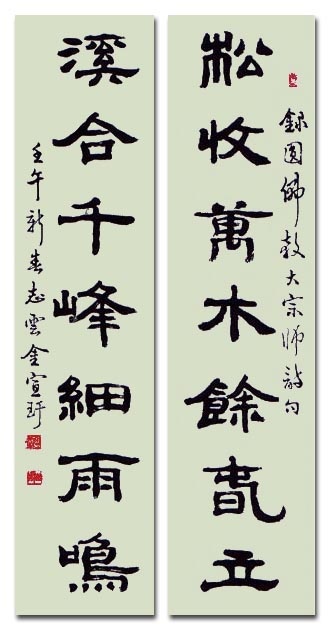 録圓佛教大宗師詩句
松收萬木餘春立
溪合千峰細雨鳴
壬午新春志雲金宣